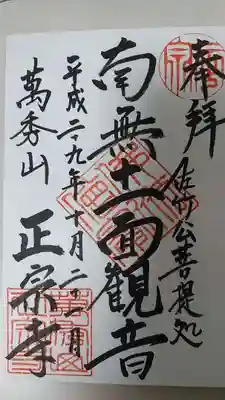 奉拝
佐竹公菩提処
南無十一面観音
平成二十九年十月二十一日
萬秀山 正宗寺